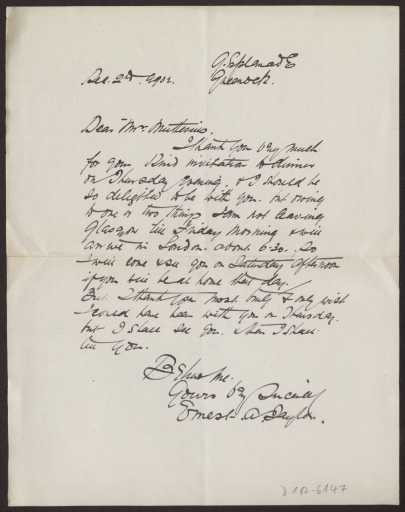 9. Esplanade
Dec. 2nd. 1902. Greenock.
Dear Mrs. Muthesius.
Thank you very much
for your kind invitation to dinner
on Thursday evening. & I should be
so delighted to be with you. but owing
to one or two things I am not leaving
Glasgow till Friday morning & will
arrive in London. about 6.30. So
I will come & see you on Saturday afternoon
if you will be at home that day.
But I thank you most truly & only wish
I could have been with you on Thursday.
but I shall see you. when I shall
you.
Believe me.
Yours very Sincerely
Ernest. A Taylor.
D 102-6147